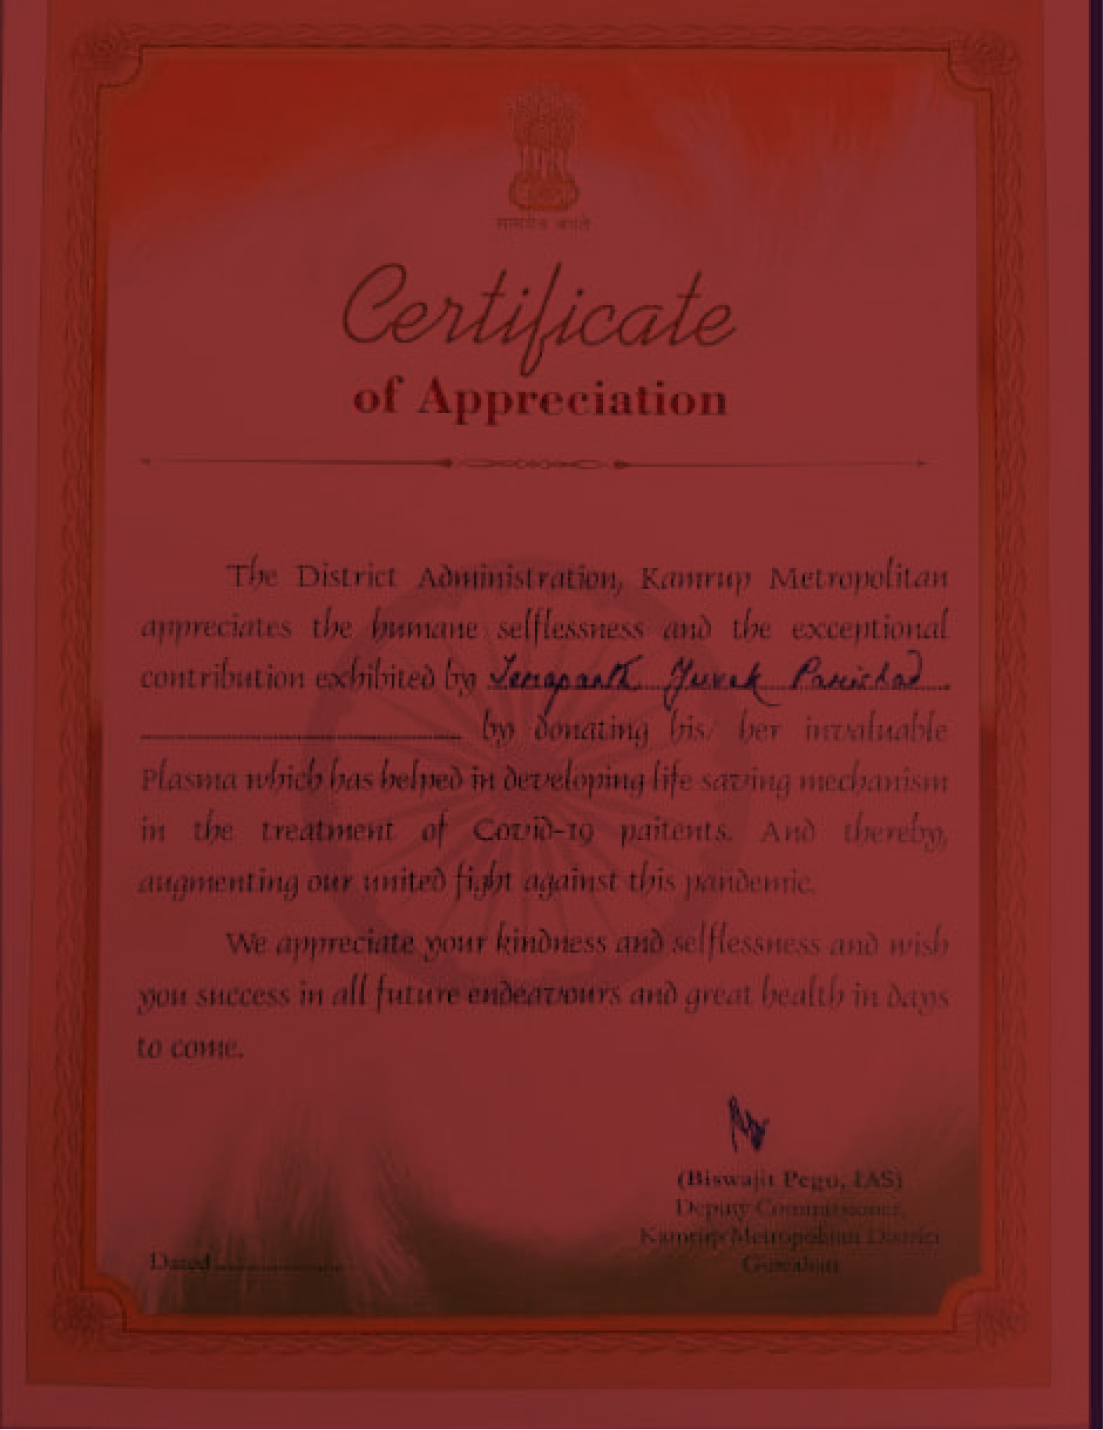 सत्यमेव जयते
Certificate
of Appreciation
The District Administration, Kamrup Metropolitan
appreciates the humane selflessness and the exceptional
contribution exhibited by Terapanth Yuvak Parishad
by donating his/ her invaluable
Plasma which has helped in developing life saving mechanism
in the treatment of Covid-19 paitents. And thereby,
augmenting our united fight against this pandemic.
We appreciate your kindness and selflessness and wish
you success in all future endeavours and great health in days
to come.
(Biswajit Pegu, IAS)
Deputy Commissioner,
Kamrup Metropolitan District
Guwahati
Dated....................